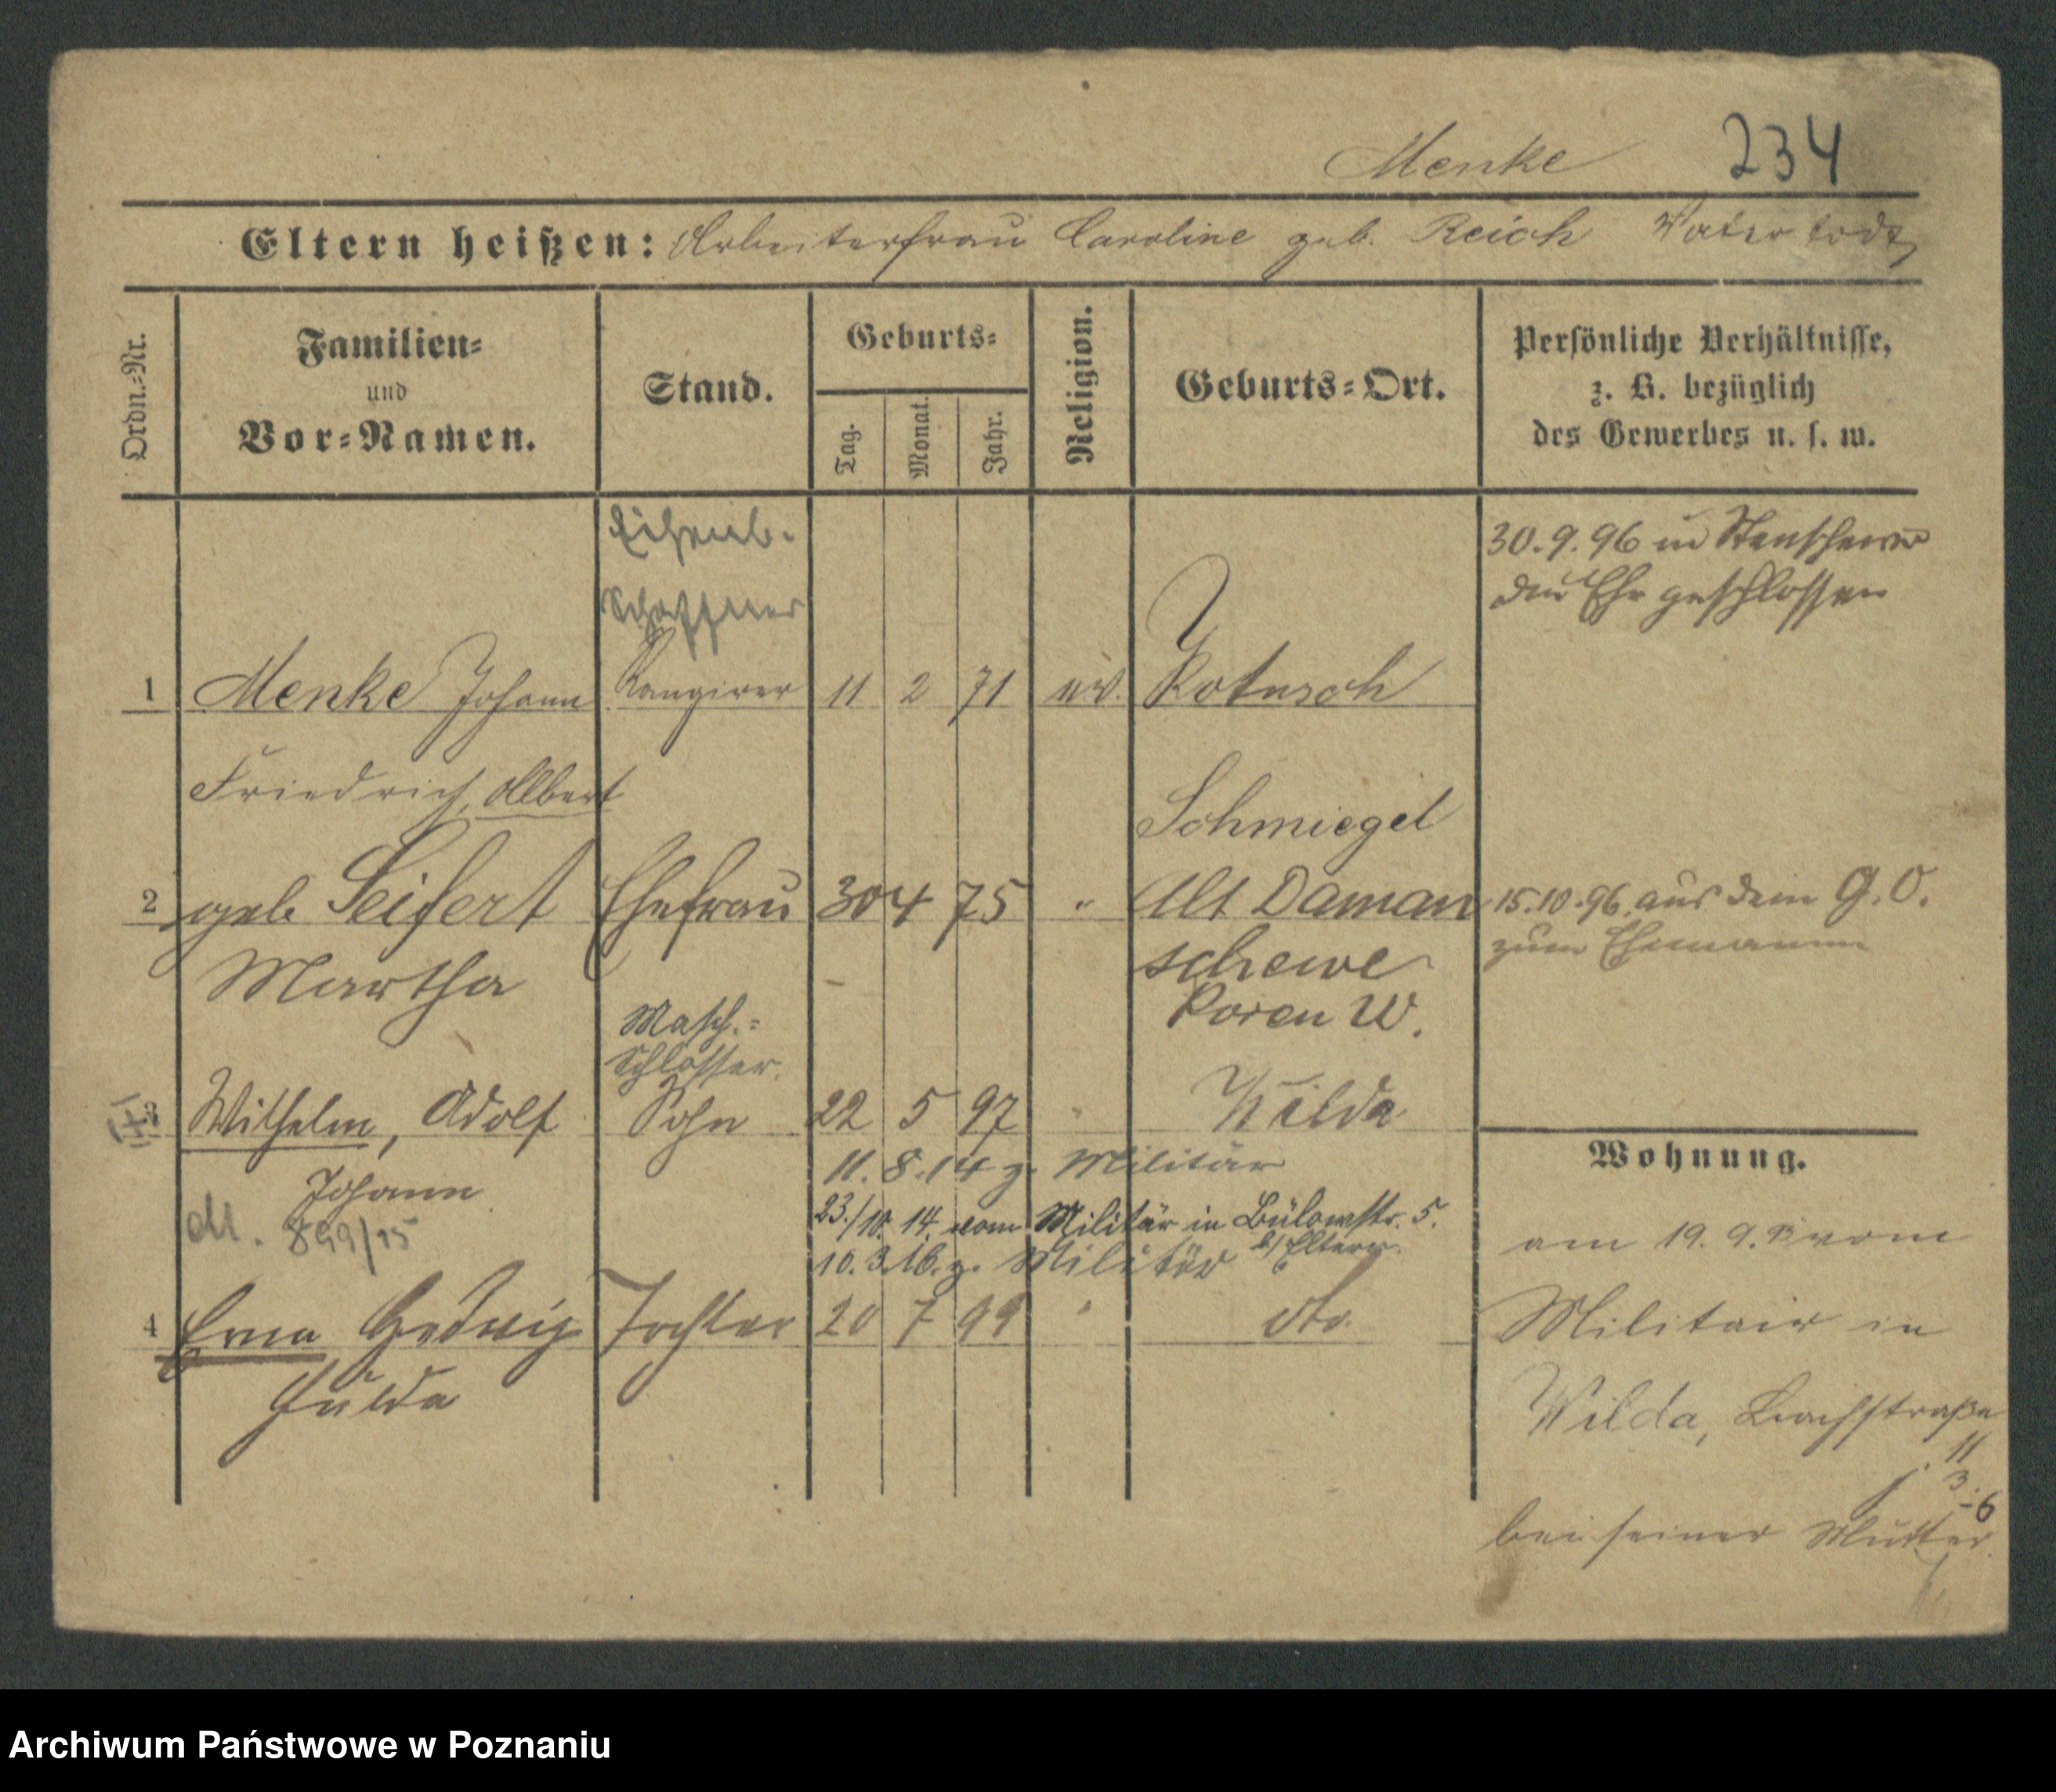 Menke 234
Eltern heißen: Arbeiterfrau Caroline geb. Reich Vater todt
Ordn.-Nr.
Familien-
und
Vor-Namen.
Stand.
Geburts-
Tag.
Monat.
Jahr.
Religion.
Geburts-Ort.
Persönliche Verhältnisse,
z. B. bezüglich
des Gewerbes u. s. w.
Eisenb.
Schaffner
30.9.96 in Stenschewo
die Ehe geschlossen
1 Menke Johann Rangirer 11 2 71 ev. Kotusch
Friedrich, Albert
Schmiegel
2 geb Seifert Ehefrau 30 4 75 " Alt Daman
15.10.96 aus dem G.O.
zum Ehemann
Martha
schewe
Posen W.
Masch.-
Schlosser.
3 Wilhelm, Adolf Sohn 22 5 97 " Wilda
Johann
11.8.14 z. Militär
23./10. 14. vom Militär in Bülowstr. 5.
b/ Eltern.
10.3.16. z. Militär
899/15
4 Erna Hedwig Tochter 20 7 99 " dto.
Hulda
Wohnung.
am 19. 9. 93 vom
Militair in
Wilda, Bachstraße
11
3
6
bei seiner Mutter
Archiwum Państwowe w Poznaniu